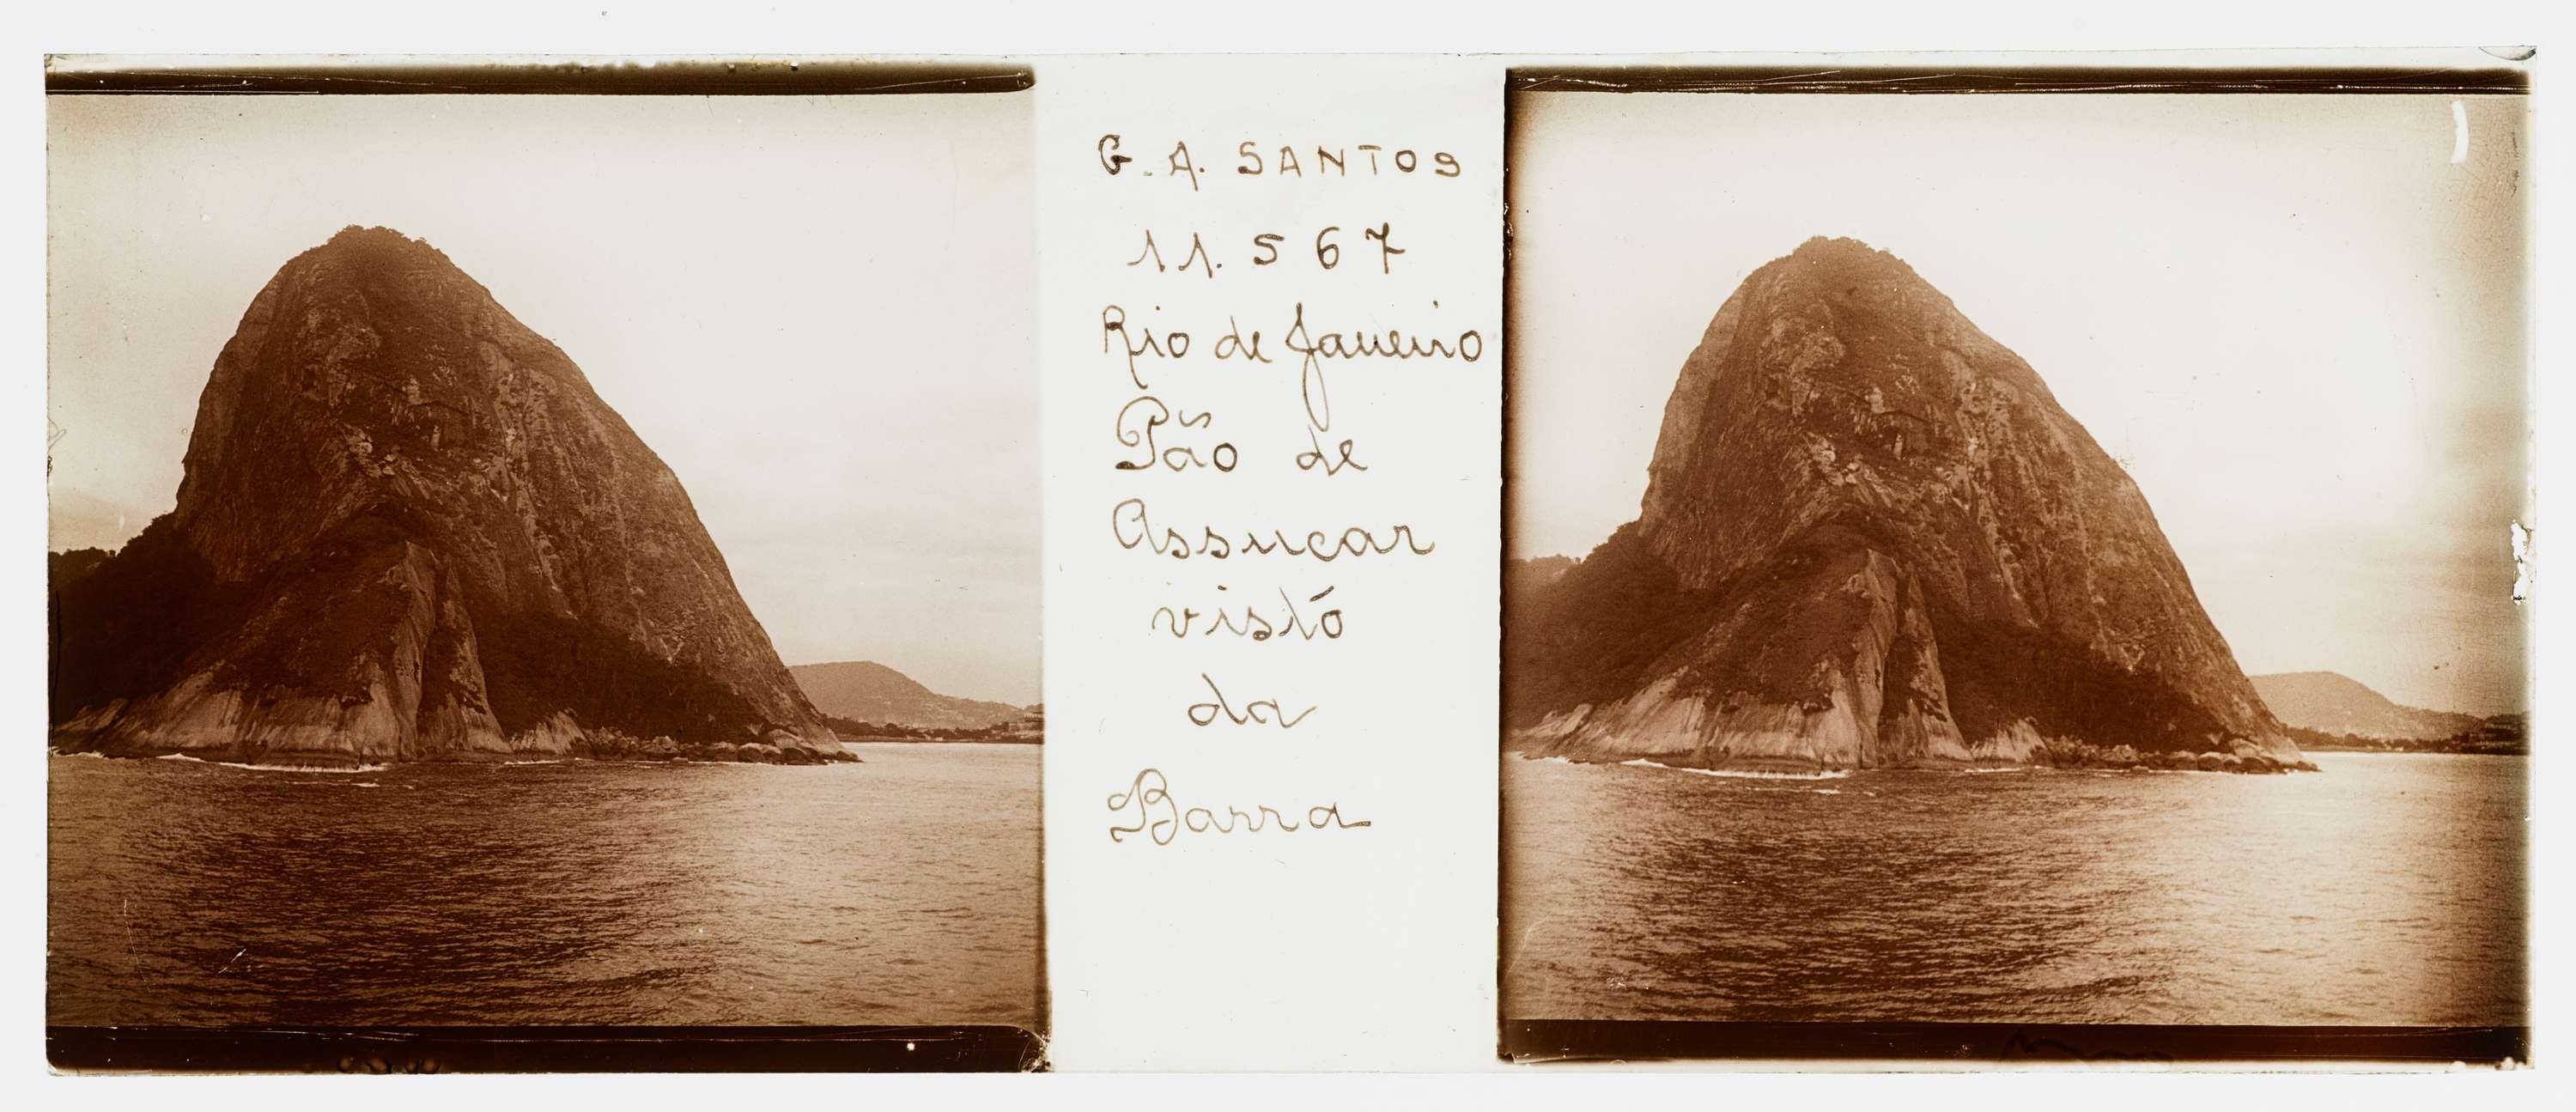 G. A. SANTOS
11.567
Rio de Janeiro
Pão de
Assucar
visto
da
Barra